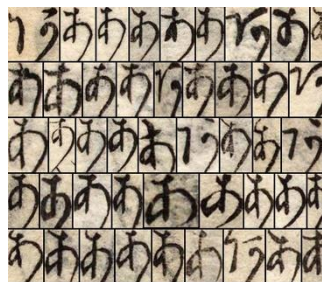 あ あ あ あ あ あ
あ あ あ あ あ あ あ
あ あ あ あ あ あ あ
あ あ あ あ あ あ あ あ
あ あ あ あ あ あ あ あ